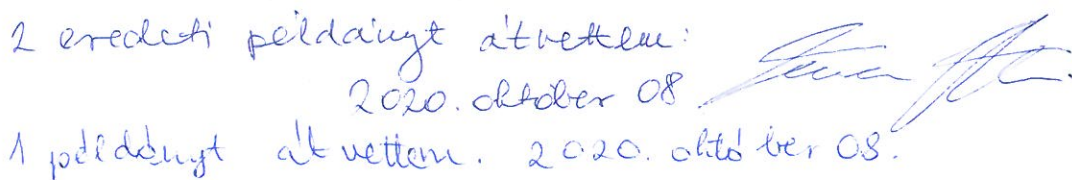 2 eredeti példányt átvettem:
2020. október 08
1 példányt átvettem. 2020. október 08.